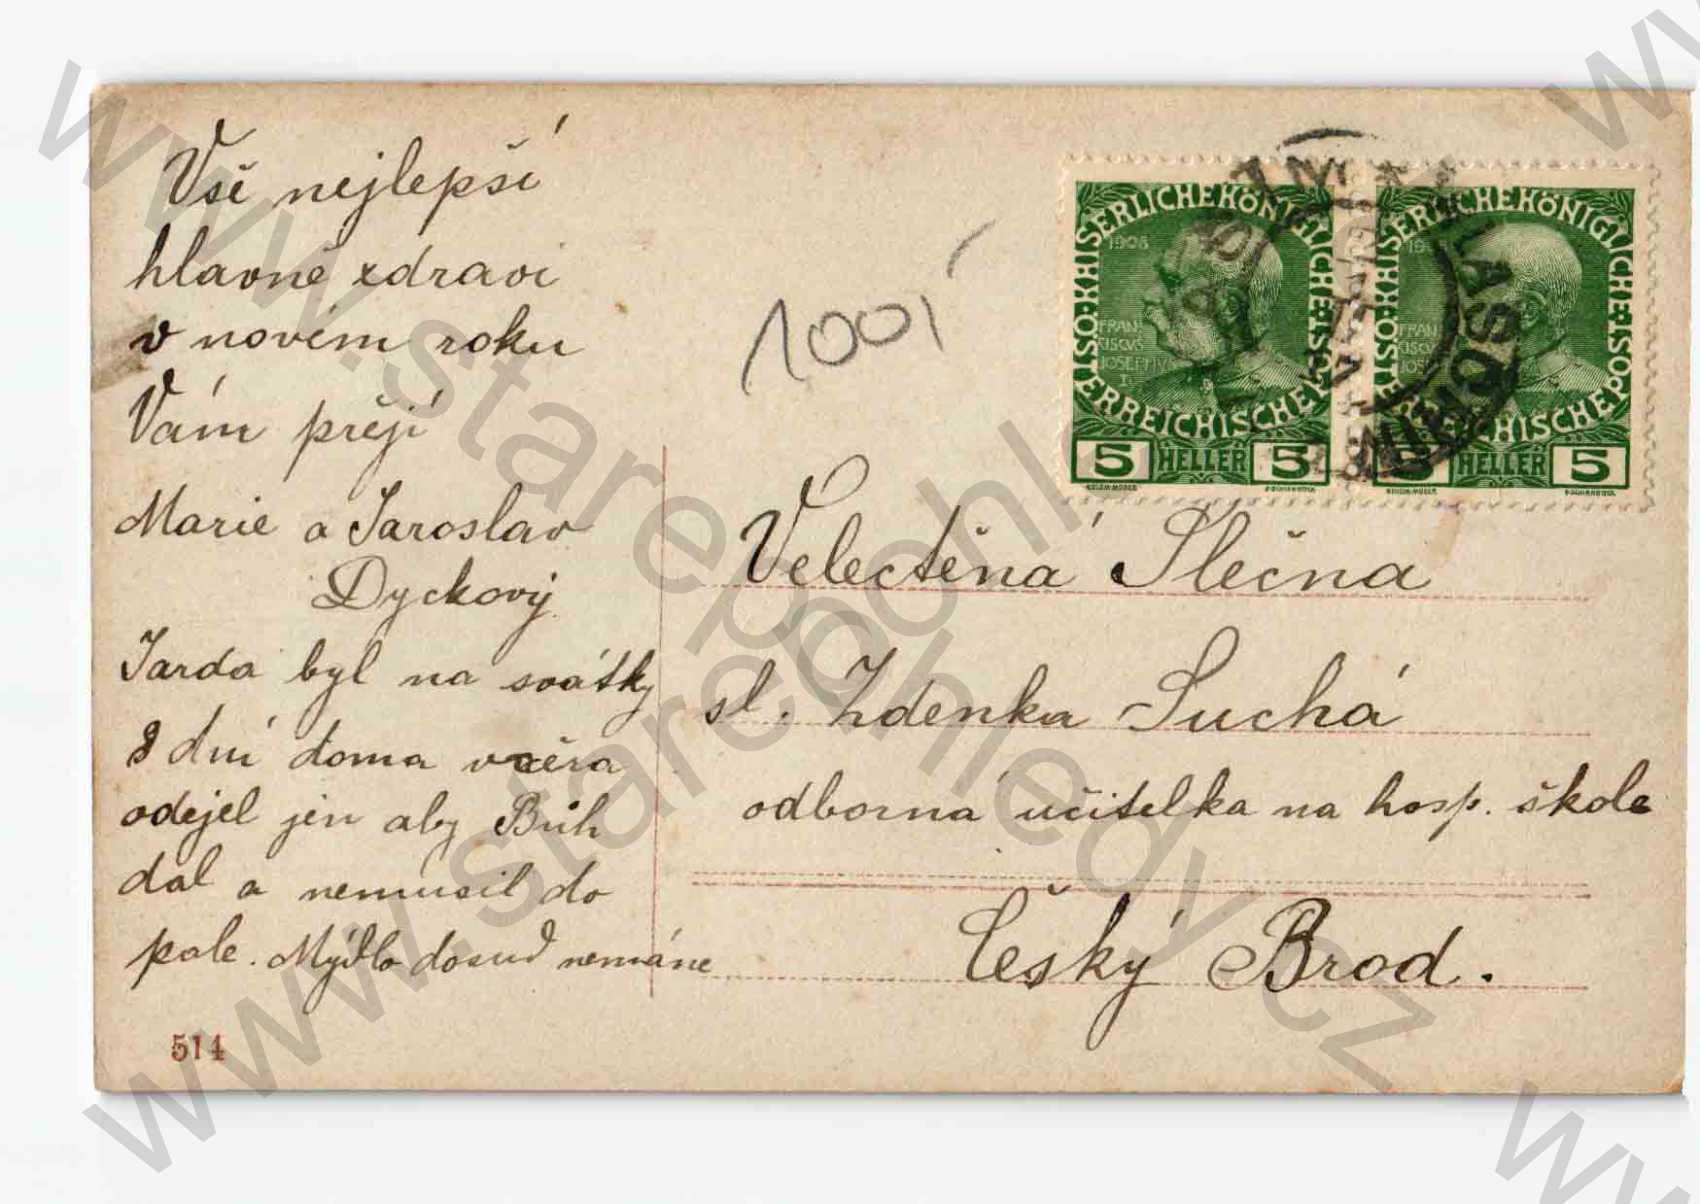 Vše nejlepší
hlavně zdraví
v novém roku
Vám přejí
Marie a Jaroslav
Dyckovy.
Jarda byl na svátky
8 dní doma včera
odejel jen aby Bůh
dal a nemusil do
pole. Mýdlo dosud nemáne
514
100,-
KAISERLICHE KÖNIGLICHE ÖSTERREICHISCHE POST
1908
FRANCISCVS IOSEPHVS I
5 HELLER 5
KAISERLICHE KÖNIGLICHE ÖSTERREICHISCHE POST
5 HELLER 5
VLAŠIM
Velectěná Slečna
sl. Zdenka Suchá
odborná učitelka na hosp. škole
Český Brod.
www.starepohledy.cz
www.starepohledy.cz